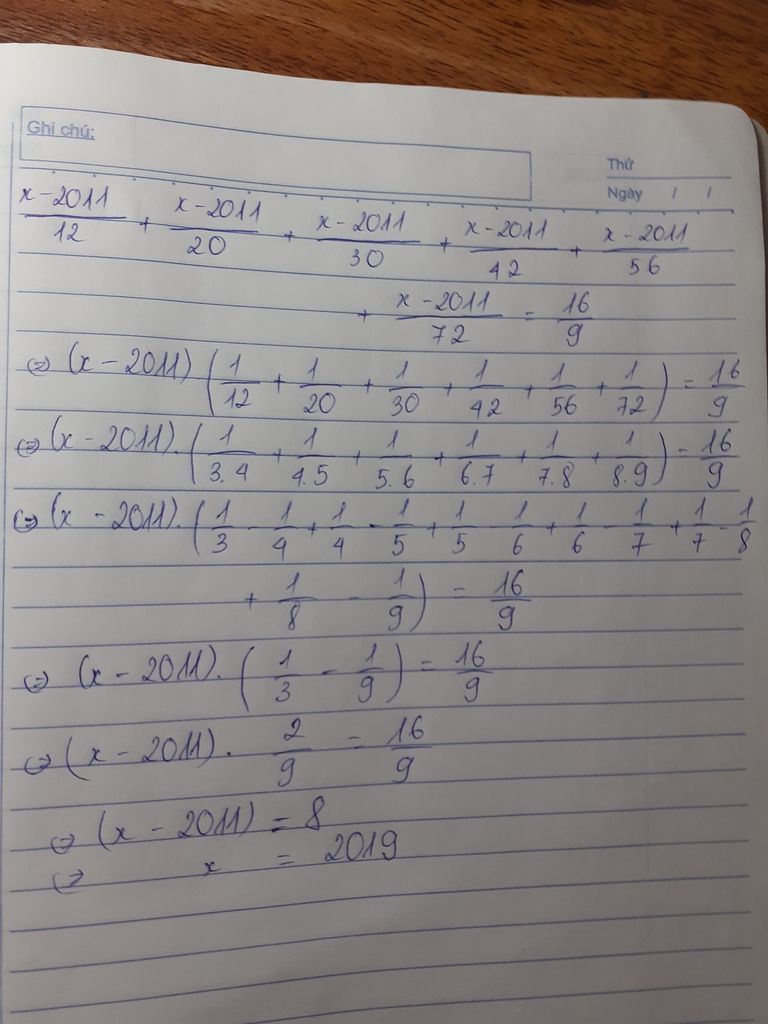 Ghi chú:
Thứ
Ngày / /
x-2011/12 + x-2011/20 + x-2011/30 + x-2011/42 + x-2011/56
+ x-2011/72 = 16/9
⇔ (x-2011) (1/12 + 1/20 + 1/30 + 1/42 + 1/56 + 1/72) = 16/9
⇔ (x-2011).(1/3.4 + 1/4.5 + 1/5.6 + 1/6.7 + 1/7.8 + 1/8.9) = 16/9
⇔ (x-2011).(1/3 - 1/4 + 1/4 - 1/5 + 1/5 - 1/6 + 1/6 - 1/7 + 1/7 - 1/8
+ 1/8 - 1/9) = 16/9
⇔ (x-2011).(1/3 - 1/9) = 16/9
⇔ (x-2011). 2/9 = 16/9
⇔ (x-2011) = 8
⇔ x = 2019